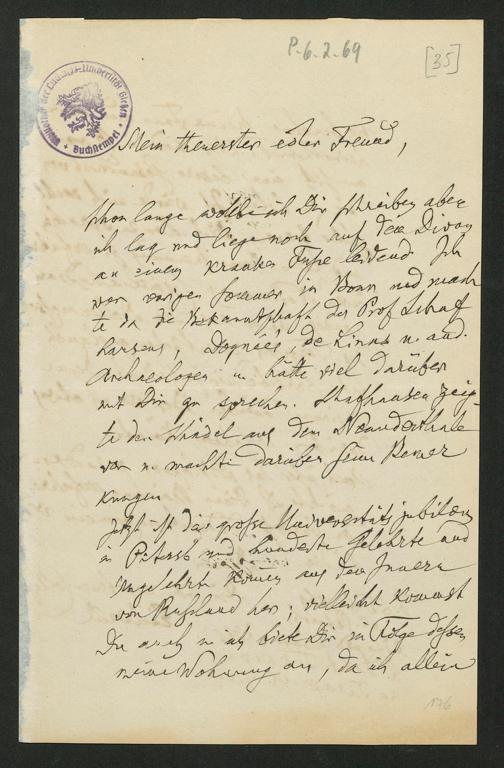 P. 6. 2. 69
[35]
Buchstempel
Mein theuerster edler Freund,
schon lange wollte ich Dir schreiben aber
ich lag und liege noch auf dem Divan
an einem kranken Fuße leidend. Ich
war vorigen Sommer in Bonn und mach
te da die Bekanntschaft des Prof Schaf
hausens, de u. and.
Archaeologen u. hätte viel darüber
mit Dir zu sprechen. Schafhausen zeig
te den Schädel aus dem Neanderthale
vor u. machte darüber seine Bemer
kungen
Jetzt ist das große Universitäts jubiläum
in Petersb und hunderte Gelehrte und
Ungelehrte kommen aus dem Innern
von Rußland her; vielleicht kommst
Du auch u ich biete Dir in Folge dessen
meine Wohnung an, da ich allein
176